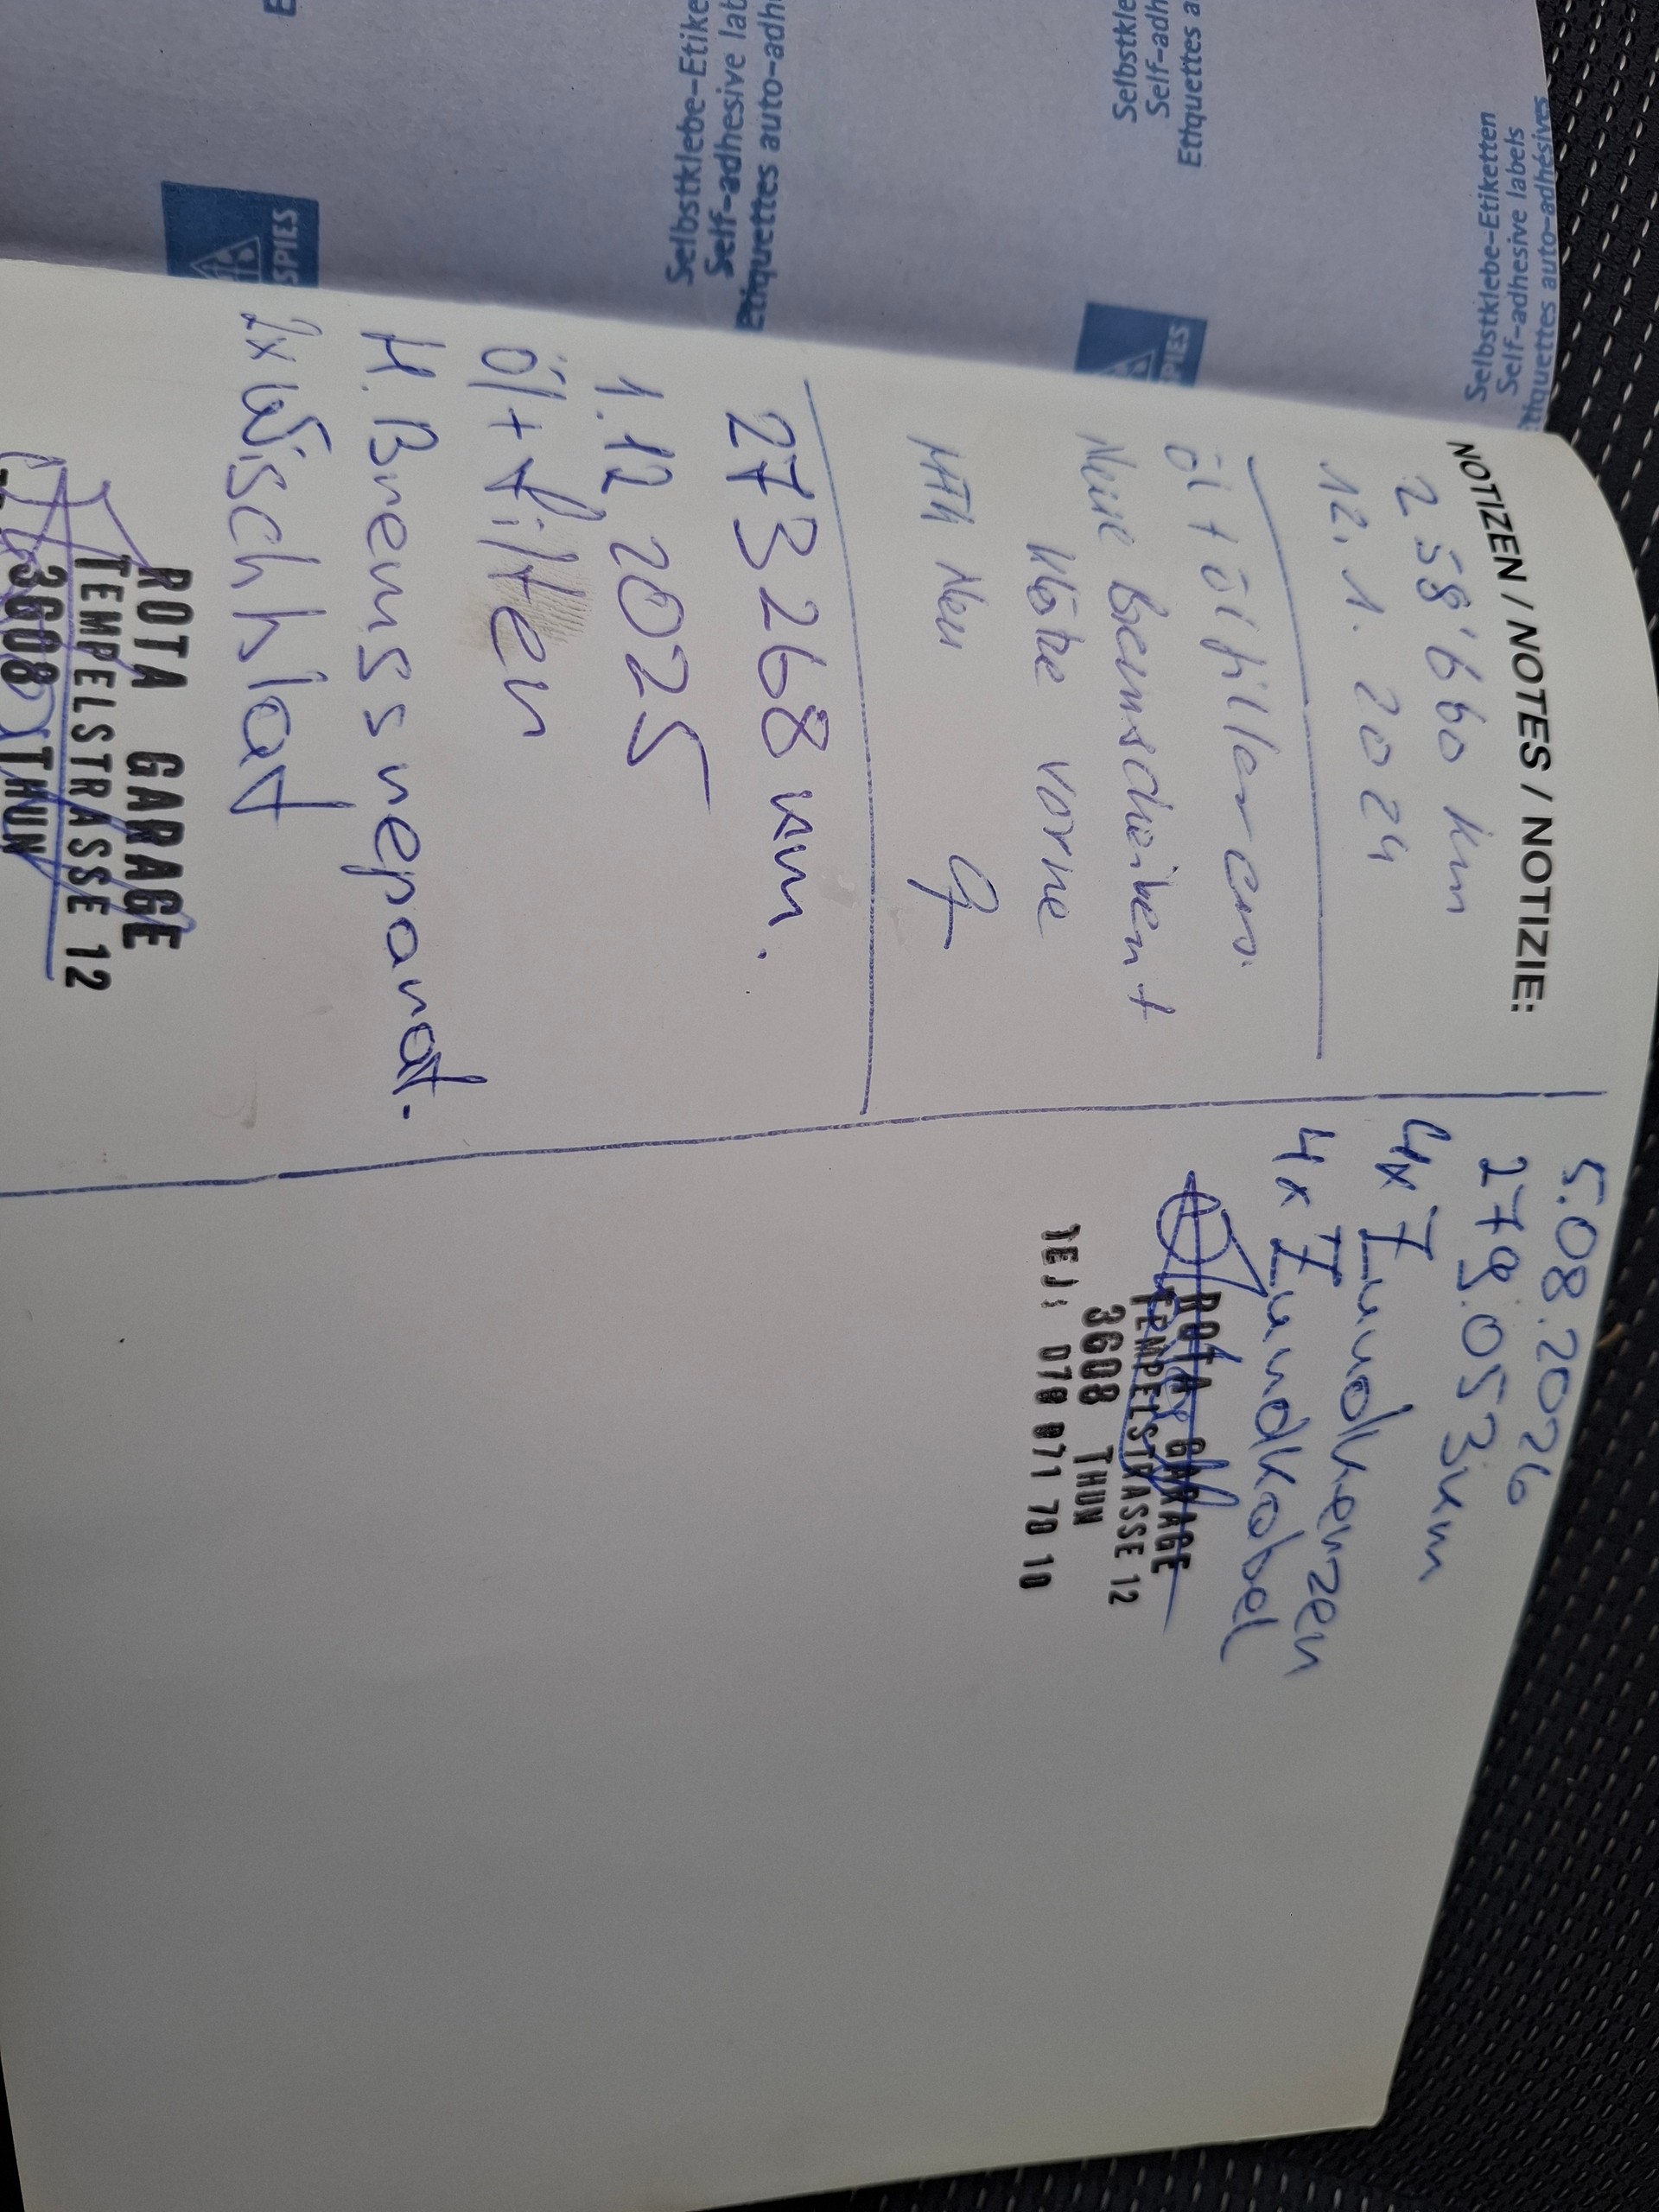 Selbstklebe-Etiketten
Self-adhesive labels
Etiquettes auto-adhésives
Selbstkle
Self-adh
Etiquettes a
SPIES
Selbstklebe-Etike
Self-adhesive lab
Etiquettes auto-adh
SPIES
NOTIZEN / NOTES / NOTIZIE:
258'660 km
12.1.2024
Öl + Ölfilter ern.
Neue Bremscheiben +
Klötze vorne
MFK Neu
273268 km.
1.12 2025
Öl + Filter
H. Bremssreparat.
2x Wischblat
ROTA GARAGE
TEMPELSTRASSE 12
3608 THUN
5.08.2026
279.053 km
4x Zundkerzen
4x Zundkabel
ROTA GARAGE
TEMPELSTRASSE 12
3608 THUN
TEL: 078 871 70 10